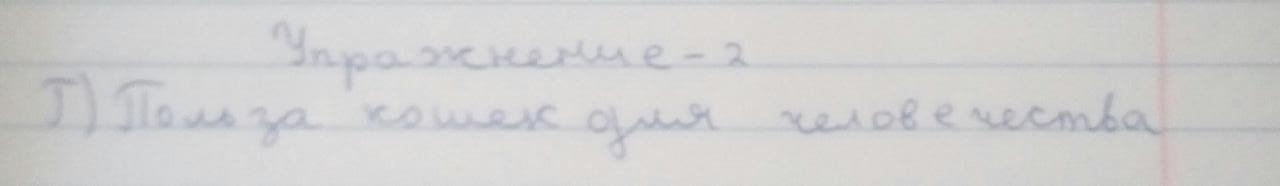 Упражнение-2
Г) Польза кошек для человечества